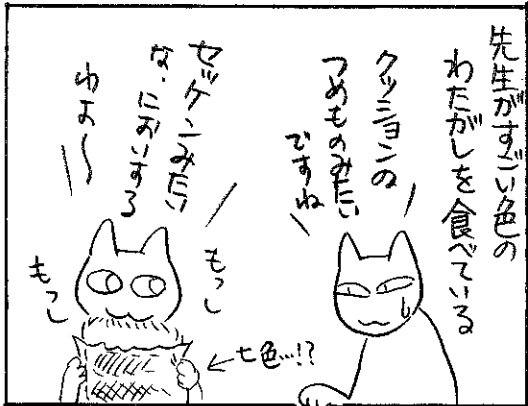 先生がすごい色の
わたがしを食べている
クッションの
つめものみたい
ですね
セッケンみたい
な、においする
わよ〜
もっし
もっし
←七色…!?